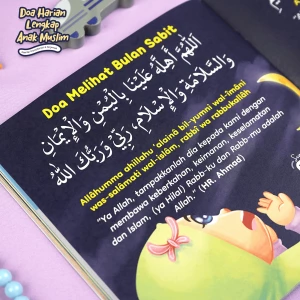 Doa Harian
Lengkap
Anak Muslim
Doa Melihat Bulan Sabit
اَللّٰهُمَّ أَهِلَّهُ عَلَيْنَا بِالْيُمْنِ وَالْإِيْمَانِ
وَالسَّلَامَةِ وَالْإِسْلَامِ، رَبِّيْ وَرَبُّكَ اللّٰهُ
Allâhumma ahillahu 'alainâ bil-yumni wal-îmâni
was-salâmati wal-islâm, rabbî wa rabbukallâh
"Ya Allah, tampakkanlah dia kepada kami dengan
membawa keberkahan, keimanan, keselamatan
dan Islam, (ya Hilal) Rabb-ku dan Rabb-mu adalah
Allah." (HR. Ahmad)